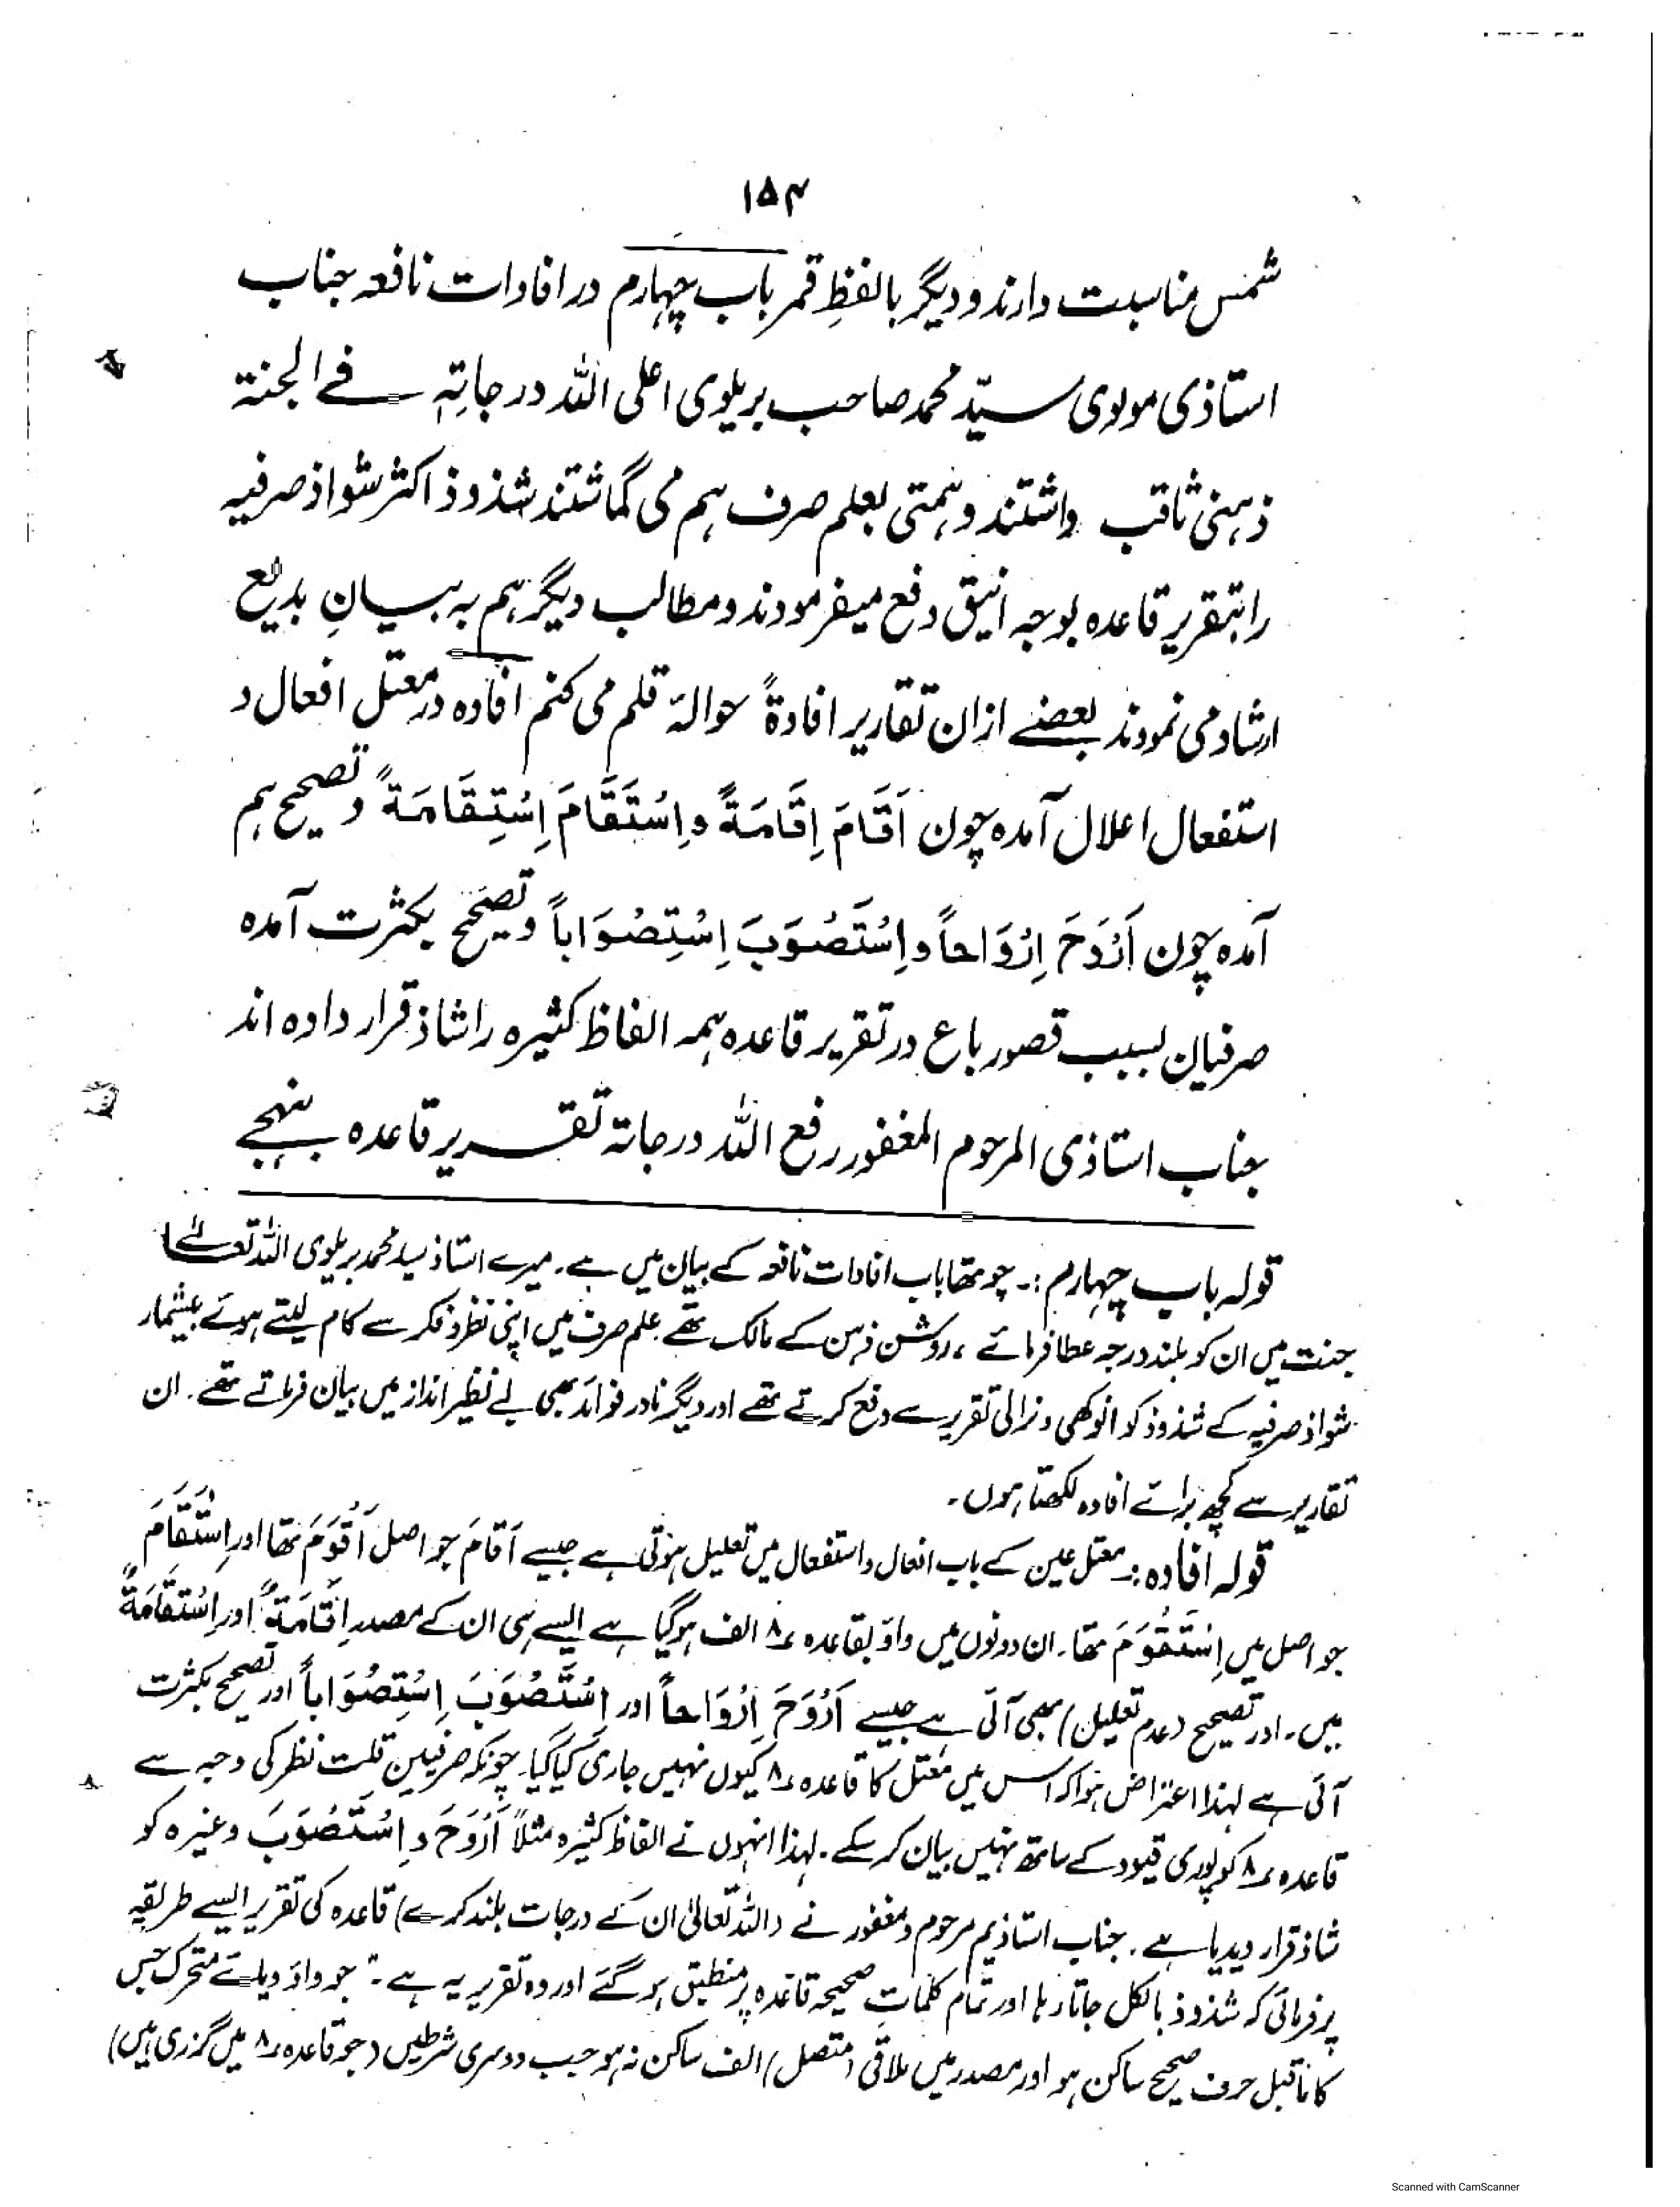 ۱۵۴
شمس مناسبت دارند و دیگر بالفظِ قمر باب چہارم در افادات نافعہ جناب
استاذی مولوی سیّد محمد صاحب بریلوی اعلی اللہ درجاتِہٖ فے الجنتہ
ذہنی ثاقب داشتند وہمتی بعلم صرف ہم می گماشتند شذوذ اکثر شواذ صرفیہ
را بتقریر قاعدہ بوجہ انیق دفع میفرمودند و مطالب دیگر ہم بہ بیانِ بدیع
ارشاد می نمودند بعضے ازان تقاریر افادۃً حوالۂ قلم می کنم افادہ در معتل افعال و
استفعال اعلال آمدہ چون اَقَامَ اِقَامَۃً و اِسْتَقَامَ اِسْتِقَامَۃً و تصحیح ہم
آمدہ چون اَرْوَحَ اِرْوَاحاً و اِسْتَصْوَبَ اِسْتِصْوَاباً و تصحیح بکثرت آمدہ
صرفیان بسبب قصور باع در تقریر قاعدہ ہمہ الفاظ کثیرہ را شاذ قرار دادہ اند
جناب استاذی المرحوم المغفور رفع اللہ درجاتہ تقریر قاعدہ بنہجے
قولہ باب چہارم :۔ چوتھا باب افادات نافعہ کے بیان میں ہے۔ میرے استاذ سید محمد بریلوی اللہ تعالےٰ
جنت میں ان کو بلند درجہ عطا فرمائے ، روشن ذہن کے مالک تھے علم صرف میں اپنی نظر و فکر سے کام لیتے ہوئے بیشمار
شواذ صرفیہ کے شذوذ کو انوکھی و نرالی تقریر سے دفع کرتے تھے اور دیگر نادر فوائد بھی بے نظیر انداز میں بیان فرماتے تھے۔ ان
تقاریر سے کچھ برائے افادہ لکھتا ہوں۔
قولہ افادہ :۔ معتل عین کے باب افعال و استفعال میں تعلیل ہوتی ہے جیسے اَقَامَ جو اصل اَقْوَمَ تھا اور اِسْتَقَامَ
جو اصل میں اِسْتَقْوَمَ تھا۔ ان دونوں میں واؤ بقاعدہ ۸ الف ہوگیا ہے ایسے ہی ان کے مصدر اِقَامَۃً اور اِسْتِقَامَۃً
ہیں۔ اور تصحیح (عدم تعلیل) بھی آتی ہے جیسے اَرْوَحَ اِرْوَاحاً اور اِسْتَصْوَبَ اِسْتِصْوَاباً اور تصحیح بکثرت
آئی ہے لہذا اعتراض ہوا کہ اس میں معتل کا قاعدہ ۸ کیوں نہیں جاری کیا گیا۔ چونکہ صرفیین قلت نظر کی وجہ سے
قاعدہ ۸ کو پوری قیود کے ساتھ نہیں بیان کر سکے۔ لہذا انہوں نے الفاظ کثیرہ مثلاً اَرْوَحَ و اِسْتَصْوَبَ وغیرہ کو
شاذ قرار دیدیا ہے۔ جناب استاذیم مرحوم و مغفور نے (اللہ تعالیٰ ان کے درجات بلند کرے) قاعدہ کی تقریر ایسے طریقہ
پر فرمائی کہ شذوذ بالکل جاتا رہا اور تمام کلماتِ صحیحہ قاعدہ پر منطبق ہو گئے اور وہ تقریر یہ ہے۔ " جو واؤ دیائے متحرک جس
کا ماقبل حرف صحیح ساکن ہو اور مصدر میں ملاقی (متصل) الف ساکن نہ ہو جب دوسری شرطیں (جو قاعدہ ۸ میں گزری ہیں)
Scanned with CamScanner